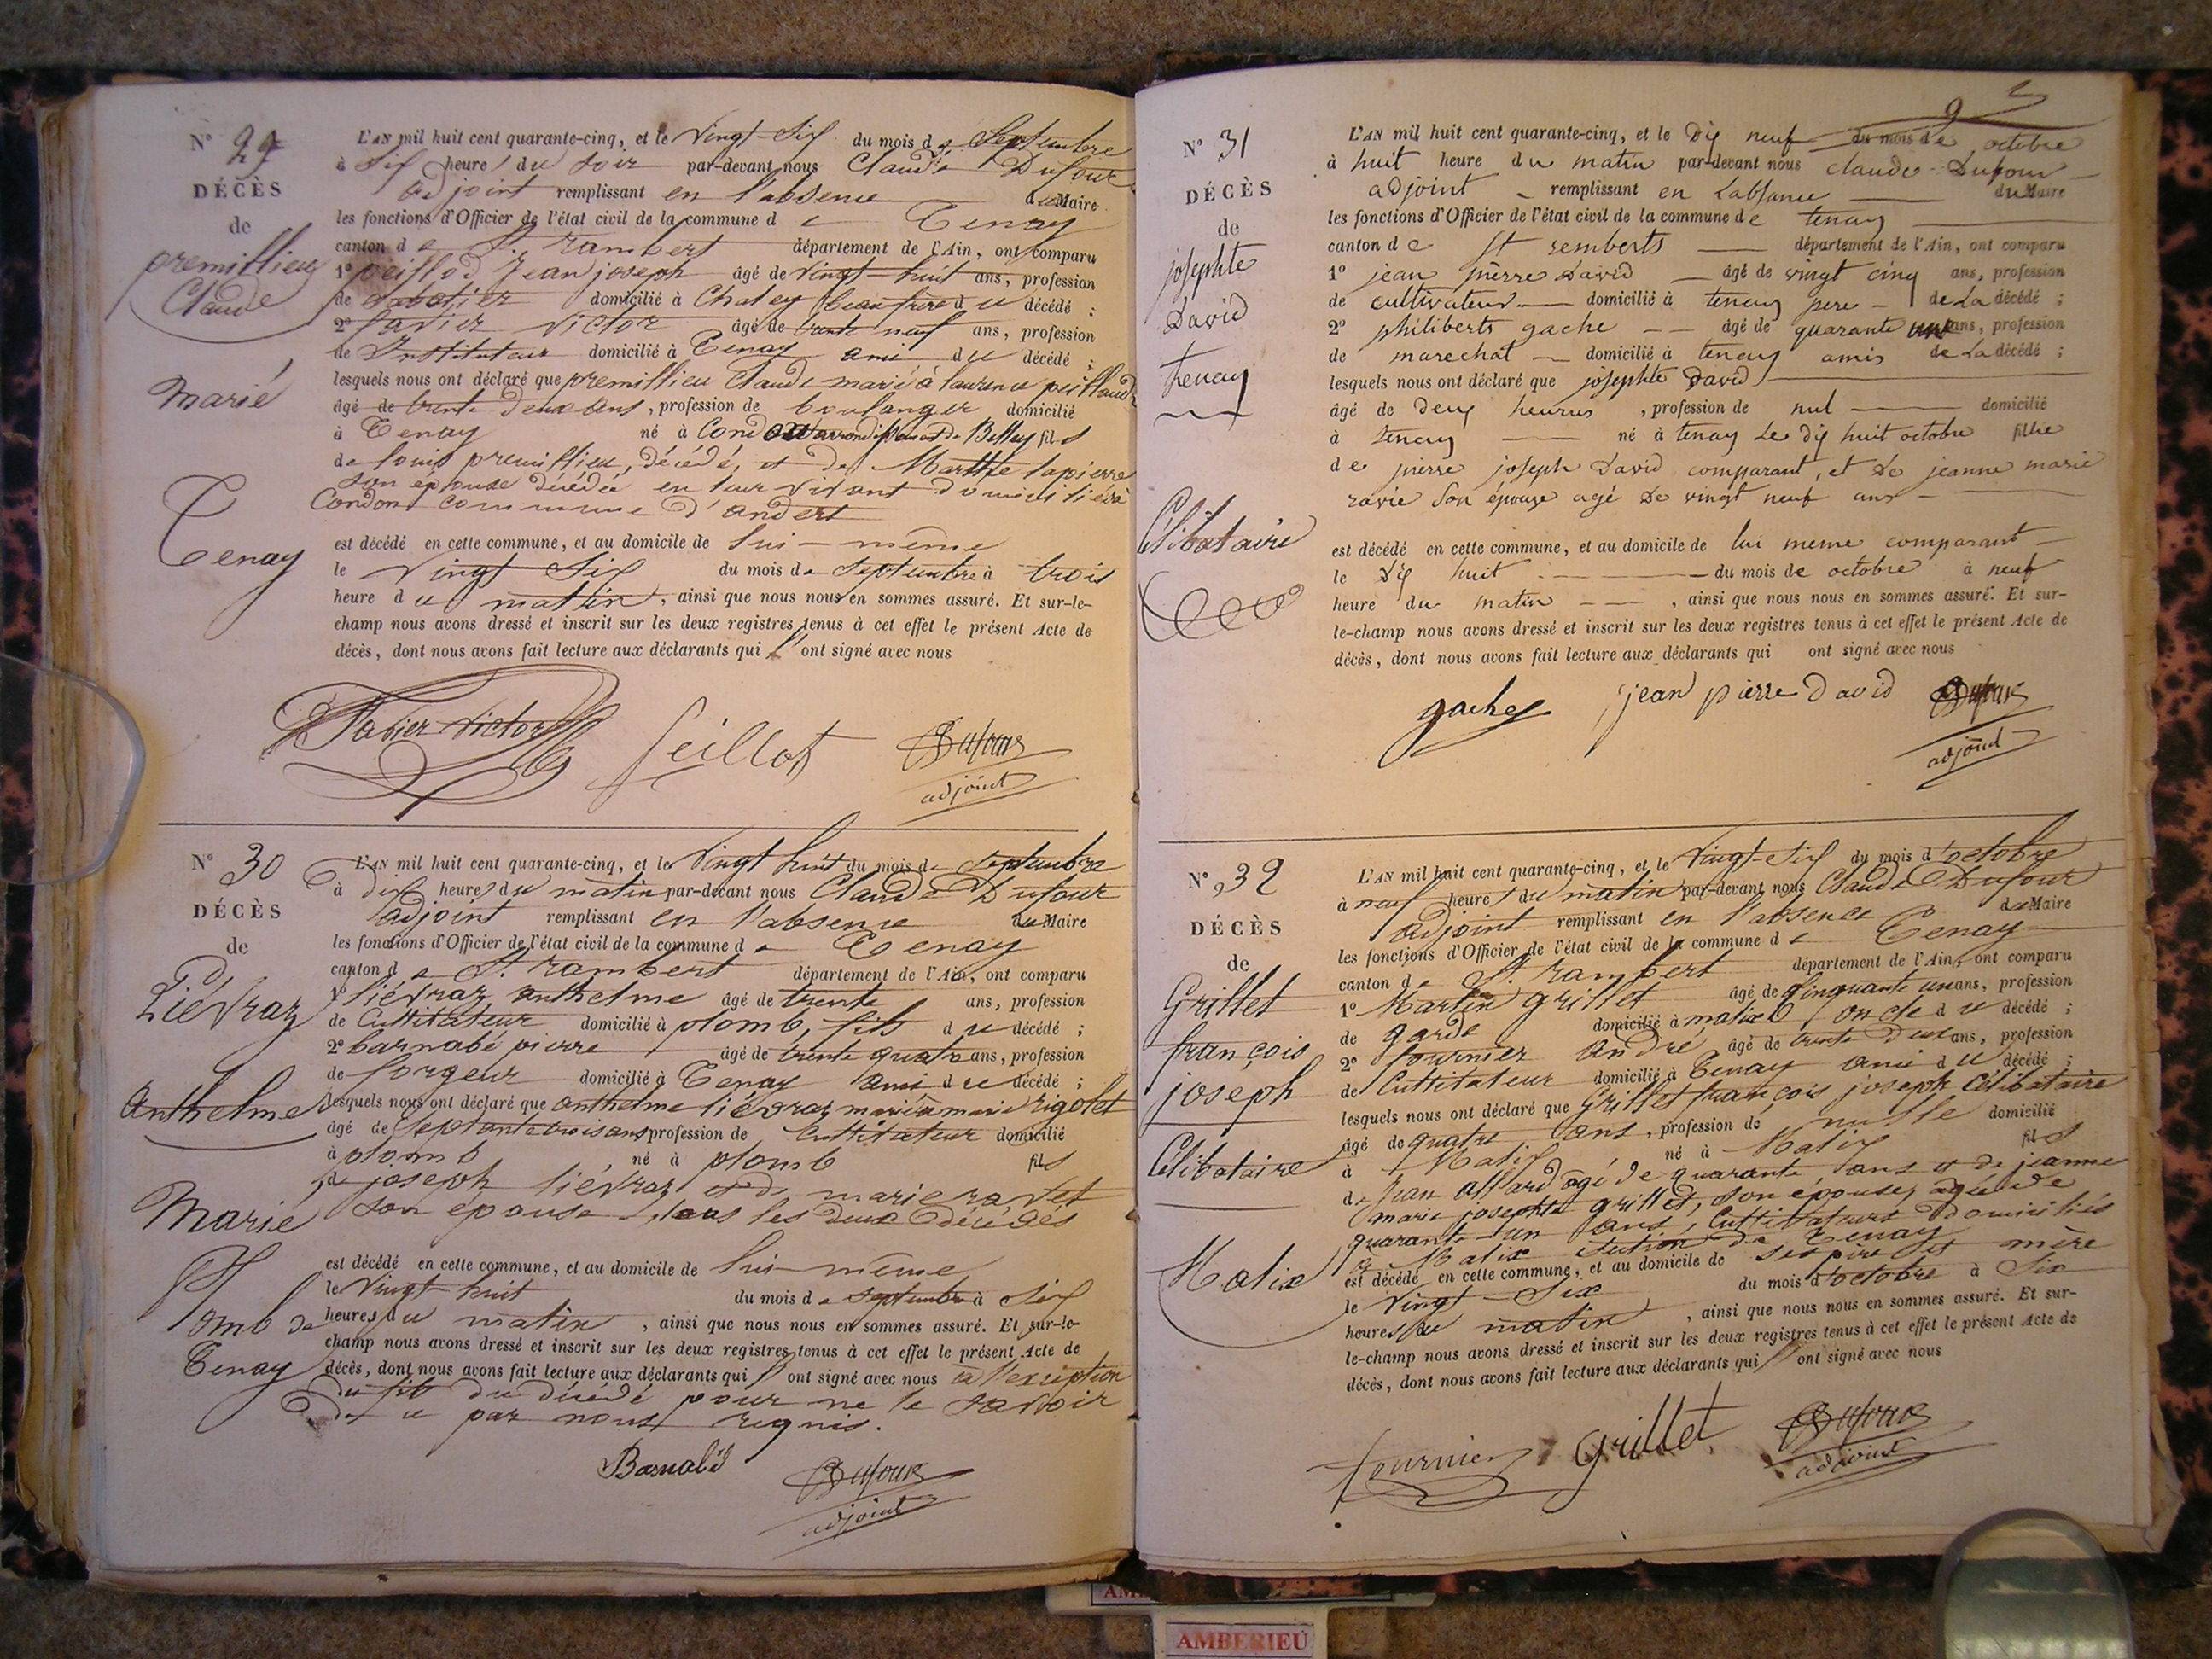 N° 29
DÉCÈS
de
premillieu
Claude
Marié
Tenay
L'AN mil huit cent quarante-cinq, et le Vingt-Six du mois de Septembre
à Six heures du soir par-devant nous Claude Dufour
adjoint remplissant en l'absence du Maire
les fonctions d'Officier de l'état civil de la commune de Tenay
canton de St. rambert département de l'Ain, ont comparu
1° peillod Jean joseph âgé de Vingt-huit ans, profession
de Sabotier domicilié à Chaley beau frère du décédé ;
2° favier victor âgé de trente neuf ans, profession
de Instituteur domicilié à Tenay ami du décédé ;
lesquels nous ont déclaré que premillieu Claude marié à laurence peillaud
âgé de trente deux ans, profession de boulanger domicilié
à Tenay né à Condon arrondissement de Belley fils
de louis premillieu, décédé, et de Marthe lapierre
son épouse décédée en leur vivant domiciliés à
Condon commune d'andert
est décédé en cette commune, et au domicile de lui-même
le Vingt Six du mois de Septembre à trois
heure du matin, ainsi que nous nous en sommes assuré. Et sur-le-
champ nous avons dressé et inscrit sur les deux registres tenus à cet effet le présent Acte de
décès, dont nous avons fait lecture aux déclarants qui l'ont signé avec nous
Favier Victor Peillot Dufour
adjoint
N° 30
DÉCÈS
de
Liévraz
Anthelme
Marié
Plomb de
Tenay
L'AN mil huit cent quarante-cinq, et le Vingt huit du mois de Septembre
à dix heures du matin par-devant nous Claude Dufour
adjoint remplissant en l'absence du Maire
les fonctions d'Officier de l'état civil de la commune de Tenay
canton de St. rambert département de l'Ain, ont comparu
1° liévraz anthelme âgé de trente ans, profession
de Cultivateur domicilié à plomb, fils du décédé ;
2° barnabé pierre âgé de trente quatre ans, profession
de forgeur domicilié à Tenay ami du décédé ;
lesquels nous ont déclaré que anthelme liévraz marié à marie rigolet
âgé de septante trois ans profession de Cultivateur domicilié
à plomb né à plomb fils
de joseph liévraz et de marie ravet
son épouse tous les deux décédés
est décédé en cette commune, et au domicile de lui-même
le Vingt huit du mois de septembre à Six
heures du matin, ainsi que nous nous en sommes assuré. Et sur-le-
champ nous avons dressé et inscrit sur les deux registres tenus à cet effet le présent Acte de
décès, dont nous avons fait lecture aux déclarants qui l'ont signé avec nous à l'exception
du fils du décédé pour ne le savoir
de ce par nous requis.
Barnabé Dufour
adjoint
9
N° 31
DÉCÈS
de
josephte
David
tenay
Célibataire
L'AN mil huit cent quarante-cinq, et le Dix neuf du mois de octobre
à huit heure du matin par-devant nous claude Dufour
adjoint remplissant en Labsance du Maire
les fonctions d'Officier de l'état civil de la commune de tenay
canton de St remberts département de l'Ain, ont comparu
1° jean pierre David âgé de vingt cinq ans, profession
de cultivateur domicilié à tenay pere de La décédé ;
2° philiberts gache âgé de quarante une ans, profession
de marechat domicilié à tenay amis de La décédé ;
lesquels nous ont déclaré que josephte David
âgé de deux heures, profession de nul domicilié
à tenay né à tenay Le dix huit octobre fillie
de pierre joseph David comparant, et De jeanne marie
ravie Son épouze agé De vingt neuf ans
est décédé en cette commune, et au domicile de lui meme comparant
le Dix huit du mois de octobre à neuf
heure du matin, ainsi que nous nous en sommes assuré. Et sur-
le-champ nous avons dressé et inscrit sur les deux registres tenus à cet effet le présent Acte de
décès, dont nous avons fait lecture aux déclarants qui ont signé avec nous
gache jean pierre David Dufour
adjoint
N° 32
DÉCÈS
de
Grillet
françois
joseph
Célibataire
Malix
L'AN mil huit cent quarante-cinq, et le Vingt-Six du mois d'octobre
à neuf heures du matin par-devant nous Claude Dufour
adjoint remplissant en l'absence du Maire
les fonctions d'Officier de l'état civil de la commune de Tenay
canton de St. rambert département de l'Ain, ont comparu
1° Martin grillet âgé de Cinquante un ans, profession
de garde domicilié à malix oncle du décédé ;
2° fournier andré âgé de trente deux ans, profession
de Cultivateur domicilié à Tenay ami du décédé ;
lesquels nous ont déclaré que Grillet françois joseph Célibataire
âgé de quatre ans, profession de nulle domicilié
à Malix né à Malix fils
de Jean allard agé de quarante ans et de jeanne
marie josephte grillet, son épouse, agée de
quarante-un ans, Cultivateurs domiciliés
à Malix section de Tenay
est décédé en cette commune, et au domicile de ses père et mère
le Vingt-Six du mois d'octobre à Six
heures du matin, ainsi que nous nous en sommes assuré. Et sur-
le-champ nous avons dressé et inscrit sur les deux registres tenus à cet effet le présent Acte de
décès, dont nous avons fait lecture aux déclarants qui ont signé avec nous
fournier grillet Dufour
adjoint
AMBERIEU